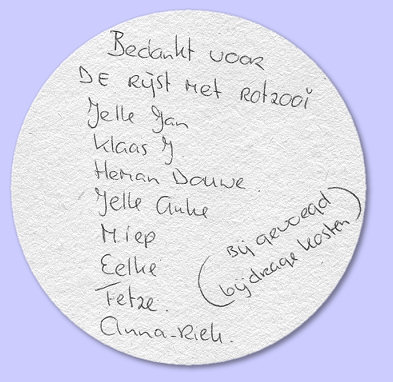 Bedankt voor
DE Rijst met Rotzooi
Jelle Jan
Klaas J.
Heman Douwe.
Jelle Anke
Miep
Eelke
Fetze.
Anna-Riek.
(Bij gevoegd
bijdrage kosten)